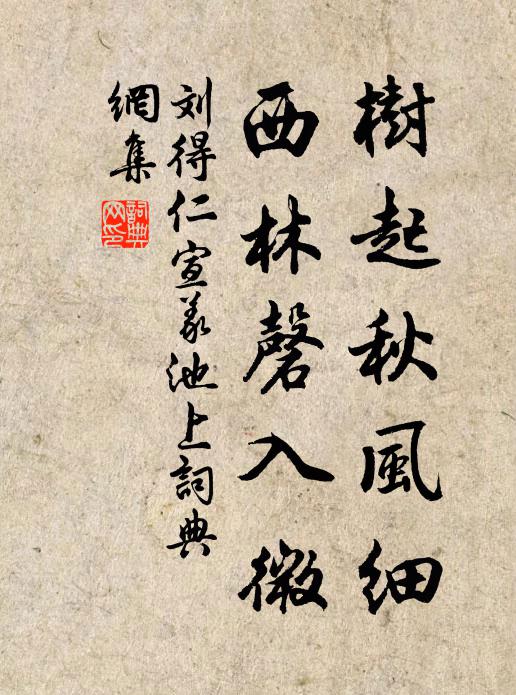 樹起秋風細
西林磬入微
刘得仁宣義池上詞典
網集
詞典
网印